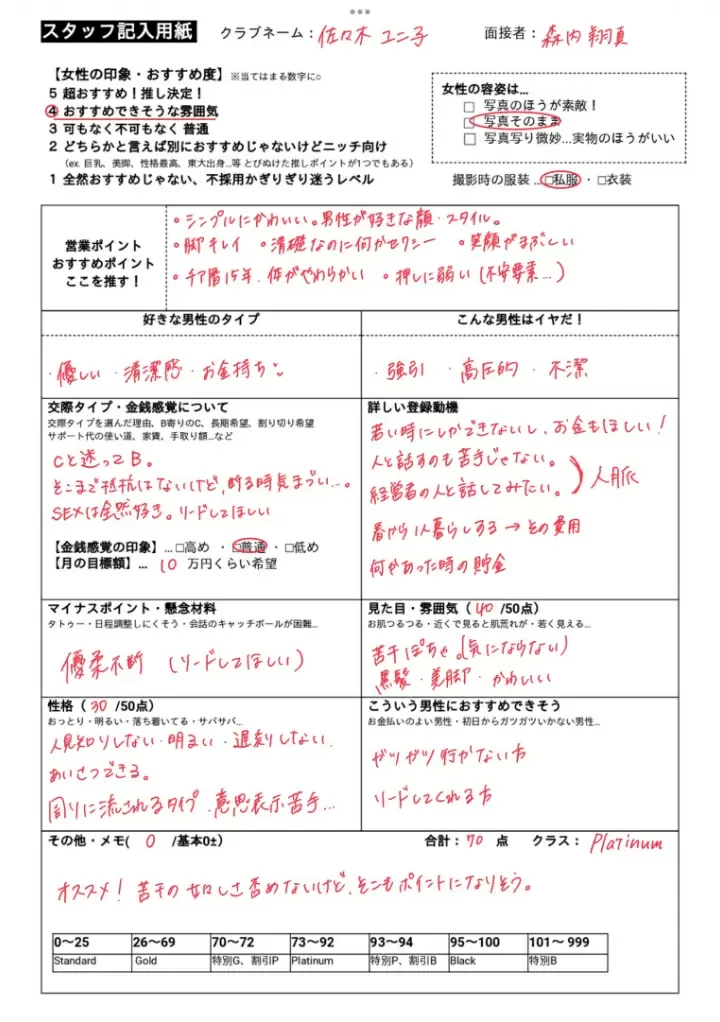 スタッフ記入用紙 クラブネーム：佐々木 ユニ子 面接者：森内 翔真
【女性の印象・おすすめ度】※当てはまる数字に○
5 超おすすめ！推し決定！
④ おすすめできそうな雰囲気
3 可もなく不可もなく 普通
2 どちらかと言えば別におすすめじゃないけどニッチ向け
（ex. 巨乳、美脚、性格最高、東大出身…等 とびぬけた推しポイントが1つでもある）
1 全然おすすめじゃない、不採用かぎりぎり迷うレベル
女性の容姿は…
□ 写真のほうが素敵！
□ 写真そのまま
□ 写真写り微妙…実物のほうがいい
撮影時の服装 …□私服・□衣装
営業ポイント
おすすめポイント
ここを推す！
・シンプルにかわいい。男性が好きな顔・スタイル。
・脚キレイ ・清礎なのに何かセクシー ・笑顔がまぶしい
・チア暦15年、体がやわらかい ・押しに弱い（不安要素…）
好きな男性のタイプ
・優しい ・清潔感 ・お金持ち
こんな男性はイヤだ！
・強引 ・高圧的 ・不潔
交際タイプ・金銭感覚について
交際タイプを選んだ理由、B寄りのC、長期希望、割り切り希望
サポート代の使い道、家賃、手取り額…など
Cと迷ってB。
そこまで抵抗はないけど、断る時気まずい…。
SEXは全然好き。リードしてほしい
【金銭感覚の印象】… □高め ・□普通・□低め
【月の目標額】… 10 万円くらい希望
詳しい登録動機
若い時にしかできないし、お金もほしい！
人と話すのも苦手じゃない。
経営者の人と話してみたい。
人脈
春から1人暮らしする→その費用
何かあった時の貯金
マイナスポイント・懸念材料
タトゥー・日程調整しにくそう・会話のキャッチボールが困難…
優柔不断 （リードしてほしい）
見た目・雰囲気（ 40 /50点）
お肌つるつる・近くで見ると肌荒れが・若く見える…
若干ぽちゃ。（気にならない）
黒髪・美脚・かわいい
性格（ 30 /50点）
おっとり・明るい・落ち着いてる・サバサバ…
人見知りしない・明るい・遅刻しない、
あいさつできる。
周りに流されるタイプ、意思表示苦手…
こういう男性におすすめできそう
お金払いのよい男性・初日からガツガツいかない男性…
ガツガツ行かない方
リードしてくれる方
その他・メモ( 0 /基本0±) 合計：70 点 クラス：Platinum
オススメ！若干の 否めないけど、そこもポイントになりそう。
0～25 26～69 70～72 73～92 93～94 95～100 101～ 999
Standard Gold 特別G、割引P Platinum 特別P、割引B Black 特別B